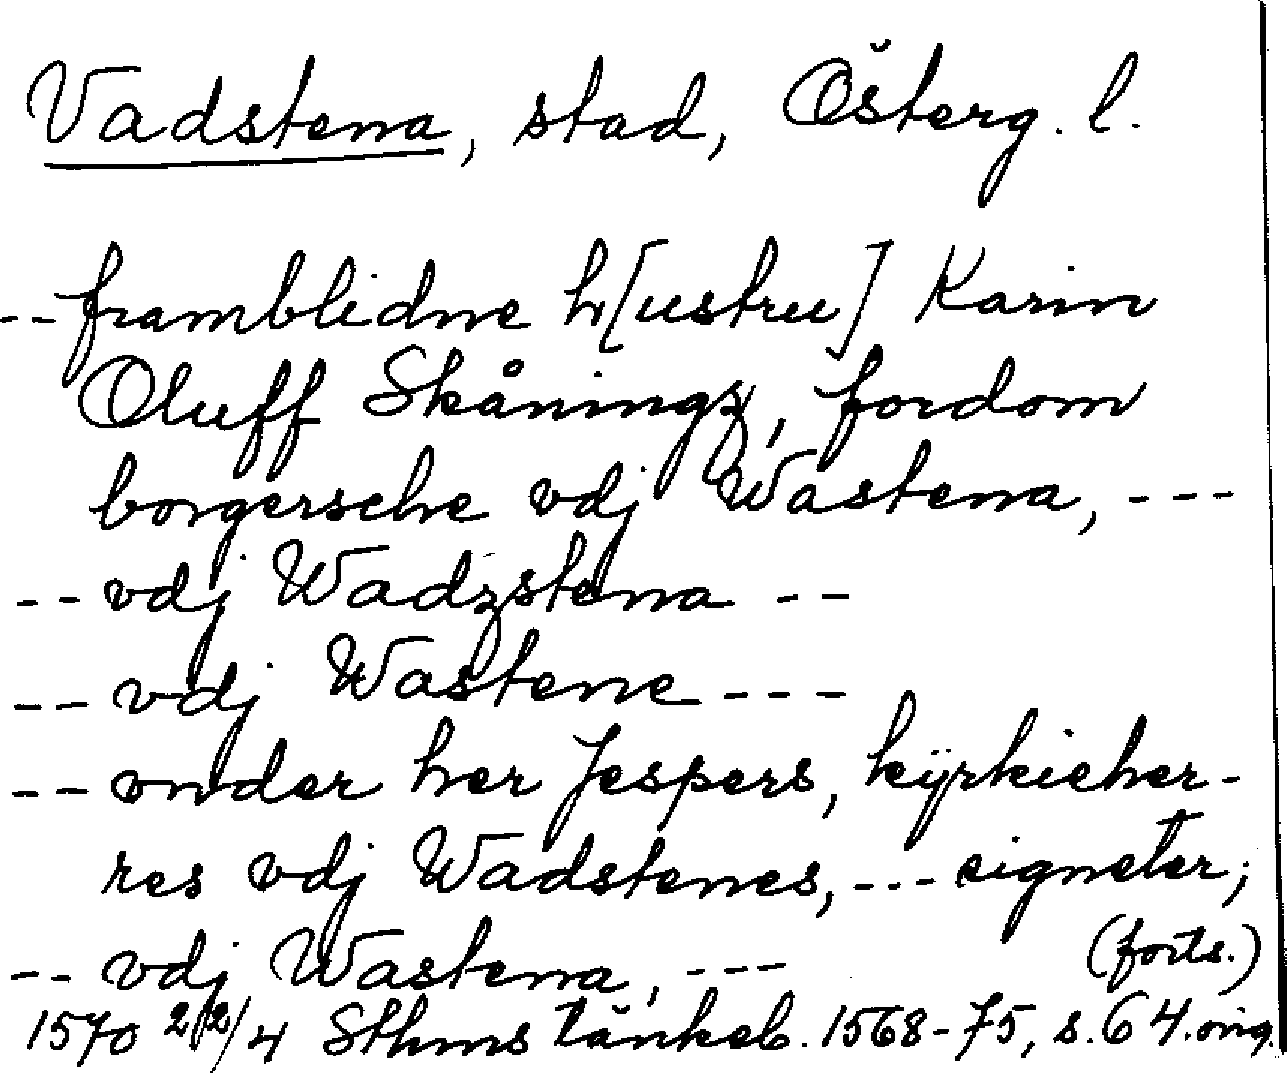 Vadstena, stad, Österg. l.
-- framblidne h[ustru] Karin
Oluff Skåningz, fordom
borgersche vdj Wastena, ---
-- vdj Wadzstena --
-- vdj Wastene ---
-- vnder her Jespers, kÿrkieher-
res vdj Wadstenes, --- signeter;
-- vdj Wastena, --- (forts.)
1570 22/4 Sthms tänkeb. 1568-75, s. 64. orig.